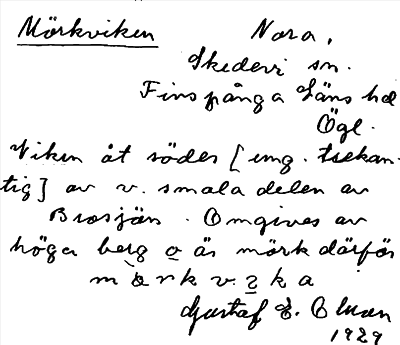 Mörkviken Nora,
Skedevi sn.
Finspånga Läns hd
Ögl.
Viken åt söder [ung. trekan-
tig] av v. smala delen av
Brosjön. Omgives av
höga berg o är mörk därför
Gustaf E. Olsson
1929